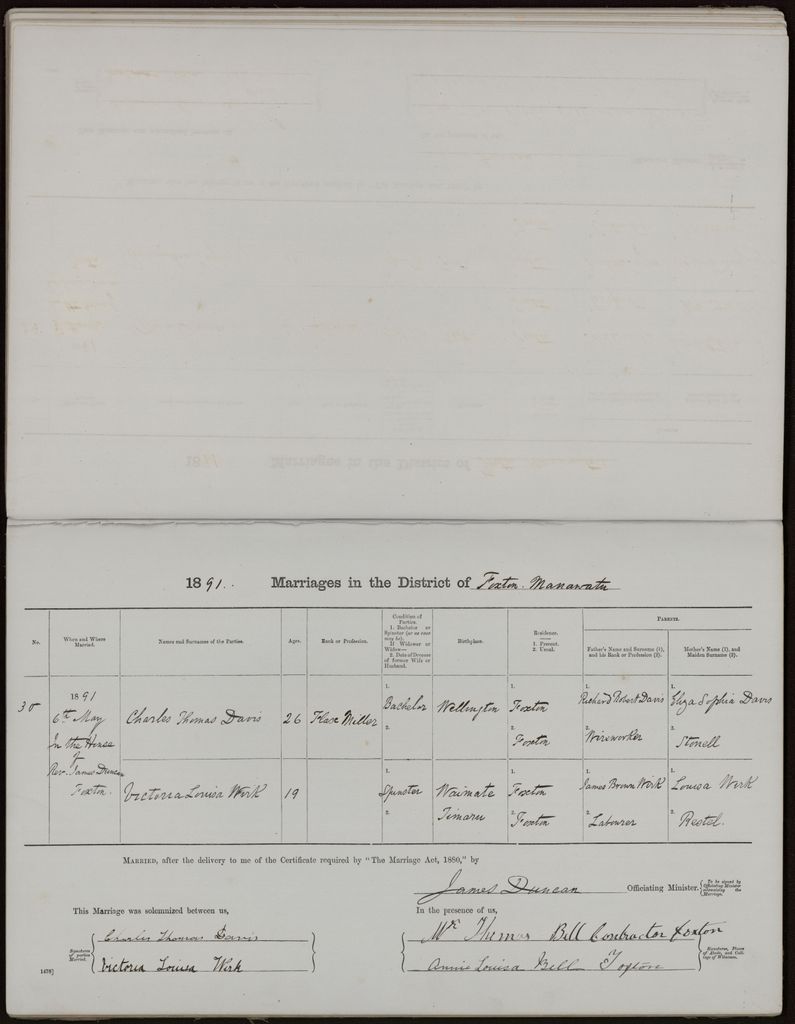 1891. Marriages in the District of Foxton Manawatu
No. When and Where Married. Names and Surnames of the Parties. Ages. Rank or Profession. Condition of Parties. 1. Bachelor or Spinster (or as case may be). If Widower or Widow— 2. Date of Decease of former Wife or Husband. Birthplace. Residence. 1. Present. 2. Usual. PARENTS.
Father's Name and Surname (1), and his Rank or Profession (2). Mother's Name (1), and Maiden Surname (2).
1891
6th May
In the House
of
Rev. James Duncan
Foxton.
Charles Thomas Davis 26 Flax Miller 1. Bachelor 2. Wellington 1. Foxton 2. Foxton 1. Richard Robert Davis 2. Wireworker 1. Eliza Sophia Davis 2. Stonell
Victoria Louisa Work 19 1. Spinster 2. Waimate Timaru 1. Foxton 2. Foxton 1. James Brown Work 2. Labourer 1. Louisa Work 2. Restel.
MARRIED, after the delivery to me of the Certificate required by "The Marriage Act, 1880," by
James Duncan Officiating Minister. {To be signed by Officiating Minister solemnizing the Marriage.
This Marriage was solemnized between us, In the presence of us,
Signatures of parties Married.
Charles Thomas Davis
Victoria Louisa Work
Mr Thomas Bell Contractor Foxton
Annie Louisa Bell Foxton
Signatures, Places of Abode, and Callings of Witnesses.
1478]